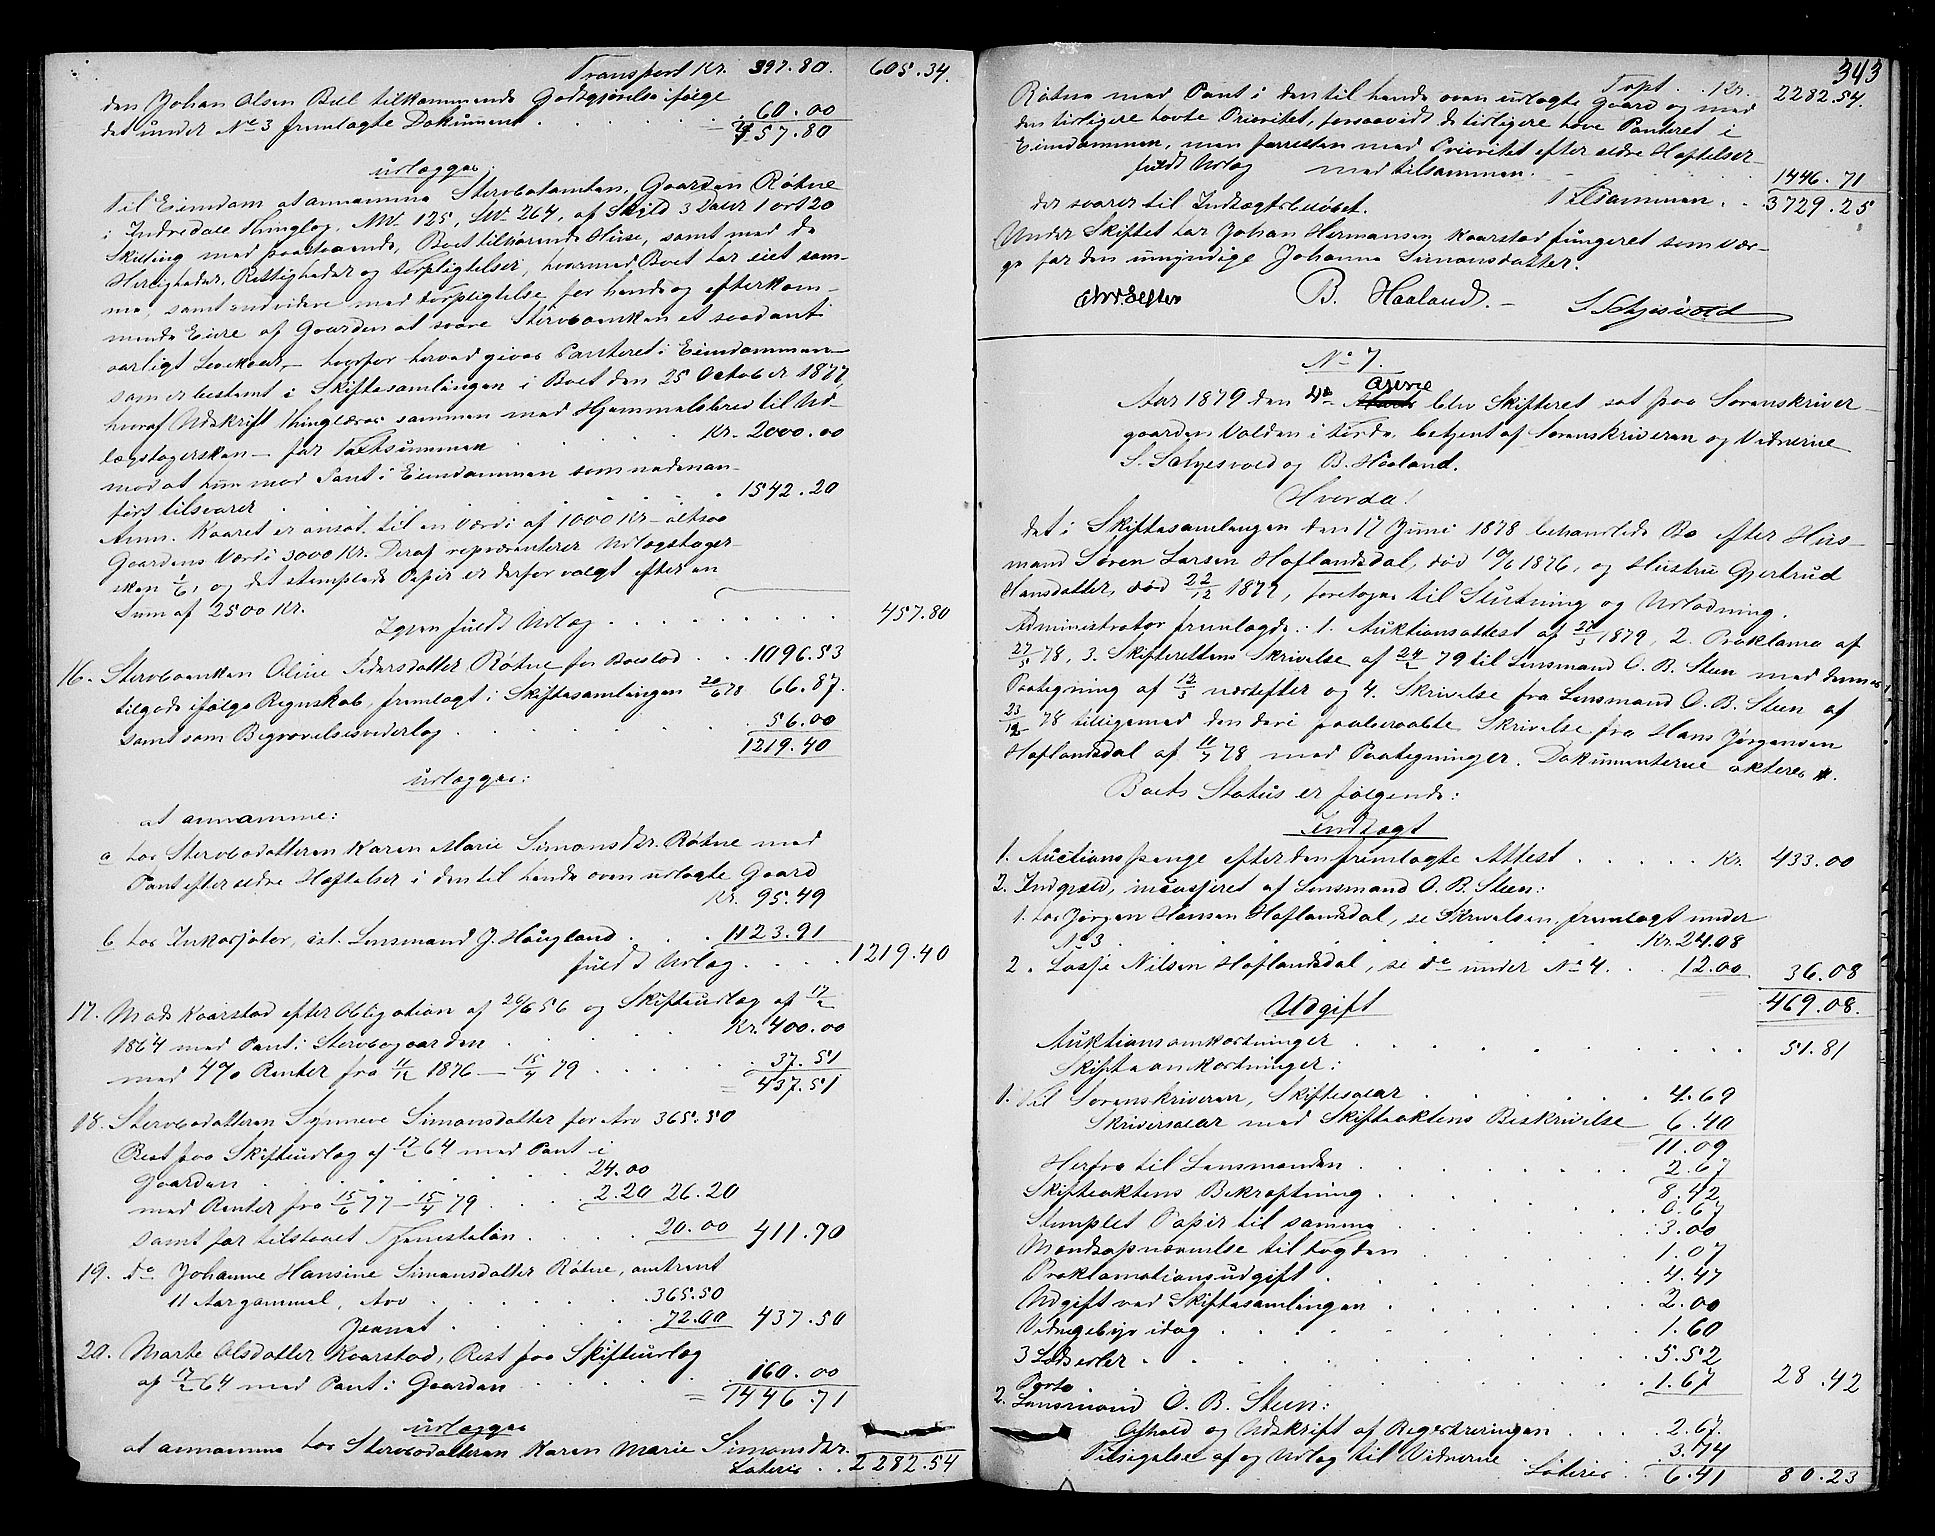 Transport Kr. 397.80. 605.34.
den Johan Olsen Bell tilkommende Godtgjørelse ifølge
det under No 3 fremlagte Dokument . . . 60.00
457.80
udlægges:
Til Eiendom at annamme Stervbotomten, Gaarden Røtne
i Indredale Thinglag, MN. 125, LN. 264, af Skyld 3 Daler 1 ort 20
Skilling med paastaaende, Boet tilhørende Huse, samt med de
Herligheder, Rettigheder og Forpligtelser, hvormed Boet har eiet sam-
me, samt endvidere med Forpligtelse for hende og efterkom-
mende Eiere af Gaarden at svare Stervboenken et saadant
særligt Levekaar, – hvorfor herved gives Panteret i Eiendommen –
som er bestemt i Skiftesamlingen i Boet den 25 October 1877,
hvoraf Udskrift thinglæses sammen med Hjemmelsbrev til Ud-
lægstagersken – for Taxtsummen Kr. 2000.00
mod at hun med Pant i Eiendommen som nedenan-
ført tilsvarer . . . 1542.20
Anm. Kaaret er ansat til en Værdi af 1000 Kr – altsaa
Gaardens Værdi 3000 Kr. Deraf repræsenterer Udlægstager-
sken 1/6, og det stemplede Papir er derfor valgt efter en
Sum af 2500 Kr.
Igjen fuldt Udlæg . . . 457.80
16. Stervboenken Oline Pedersdatter Røtne for Boeslod . . 1096.53
tilgode ifølge Regnskab, fremlagt i Skiftesamlingen 20/6 78 66.87.
samt som Begravelsesvederlag . . . 56.00
1219.40
udlægges:
at annamme:
a hos Stervbodatteren Karen Marie Simonsdtr. Røtne med
Pant efter ældre Heftelser i den til hende oven udlagte Gaard
Kr. 95.49
b hos Inkassator, cst. Lensmand J. Haugland . . 1123.91
fuldt Udlæg . . . 1219.40
17. Mads Kaarstad efter Obligation af 20/6 56 og Skifteudlæg af 17/2
1864 med Pant i Stervbogaarden . . Kr. 400.00
med 4% Renter fra 11/12 1876 – 15/4 79 . . . 37.51
437.51
18. Stervbodatteren Synneve Simonsdatter for Arv 365.50
Rest paa Skifteudlæg af 17/2 64 med Pant i
Gaarden . . . 24.00
med Renter fra 15/6 77 – 15/4 79 . . . 2.20 26.20
samt for tilstaaet Tjenesteløn . . . 20.00 411.70
19. do Johanne Hansine Simonsdatter Røtne, omtrent
11 Aar gammel, Arv . . . 365.50
Jevnet . . . 72.00 437.50
20. Marte Olsdatter Kaarstad, Rest paa Skifteudlæg
af 17/2 64 med Pant i Gaarden . . . 160.00
= 1446.71
udlægges
at annamme hos Stervbodatteren Karen Marie Simonsdtr.
Lateris . . 2282.54
343
Trpt. . . Kr. 2282.54.
Røtne med Pant i den til hende oven udlagte Gaard og med
den tidligere havte Prioritet, forsaavidt de tidligere have Panteret i
Eiendommen, men forresten med Prioritet efter ældre Heftelser
fuldt Udlæg med tilsammen . . . 1446.71
der svarer til Indtægtsbeløbet. Tilsammen . . 3729.25
Under Skiftet har Johan Hermansen Kaarstad fungeret som Vær-
ge for den umyndige Johanna Simonsdatter.
B. Haaland. – S. Selgesvold
No 7.
Aar 1879 den 4de April blev Skifteret sat paa Sorenskriver-
gaarden Valden i Førde, betjent af Sorenskriveren og Vidnerne
S. Selgesvold og B. Haaland.
Hvorda!
det i Skiftesamlingen den 17 Juni 1878 behandlede Bo efter Hus-
mand Søren Larsen Hoflandsdal, død 10/6 1876, og Hustru Gjertrud
Hansdatter, død 22/12 1877, foretoges til Slutning og Udlodning.
Administrator fremlagde: 1. Auktionsattest af 28/3 1879, 2. Proklama af
27/5 78, 3. Skifterettens Skrivelse af 24/2 79 til Lensmand O. B. Steen med dennes
Paategning af 12/3 næstefter og 4. Skrivelse fra Lensmand O. B. Steen af
23/12 78 tilligemed den deri paaberaabte Skrivelse fra Hans Jørgensen
Hoflandsdal af 11/7 78 med Paategninger. Dokumenterne akteres.
Boets Status er følgende:
Indtægt
1. Auctionspenge efter den fremlagte Attest . . . Kr. 433.00
2. Indgjæld, incasseret af Lensmand O. B. Steen:
1. hos Jørgen Hansen Hoflandsdal, se Skrivelsen, fremlagt under
No 3 . . . Kr. 24.08
2. Lasse Nilsen Hoflandsdal, se do under No 4 . . 12.00 36.08
469.08.
Udgift
Auktionsomkostninger . . . 51.81
Skifteomkostninger:
1. Til Sorenskriveren, Skiftesalær . . . 4.69
Skriversalær med Skifteaktens Beskrivelse 6.40
11.09
Herfra til Lensmanden . . . 2.67
8.42
Skifteaktens Bekræftning . . . 0.67
Stemplet Papir til samme . . . 3.00
Mandsopnævnelse til Fogden . . . 1.07
Proklamationsudgift . . . 4.47
Udgift ved Skiftesamlingen . . . 2.00
Vidnegebyr idag . . . 1.60
3 Lodsedler . . . 5.52
Porto . . . 1.67 28.42
2. Lensmand O. B. Steen:
Afhold og Udskrift af Registreringen . . . 2.67.
Tilsigelse af og Udlæg til Vidnerne . . 3.74
Lateris . . 6.41 80.23